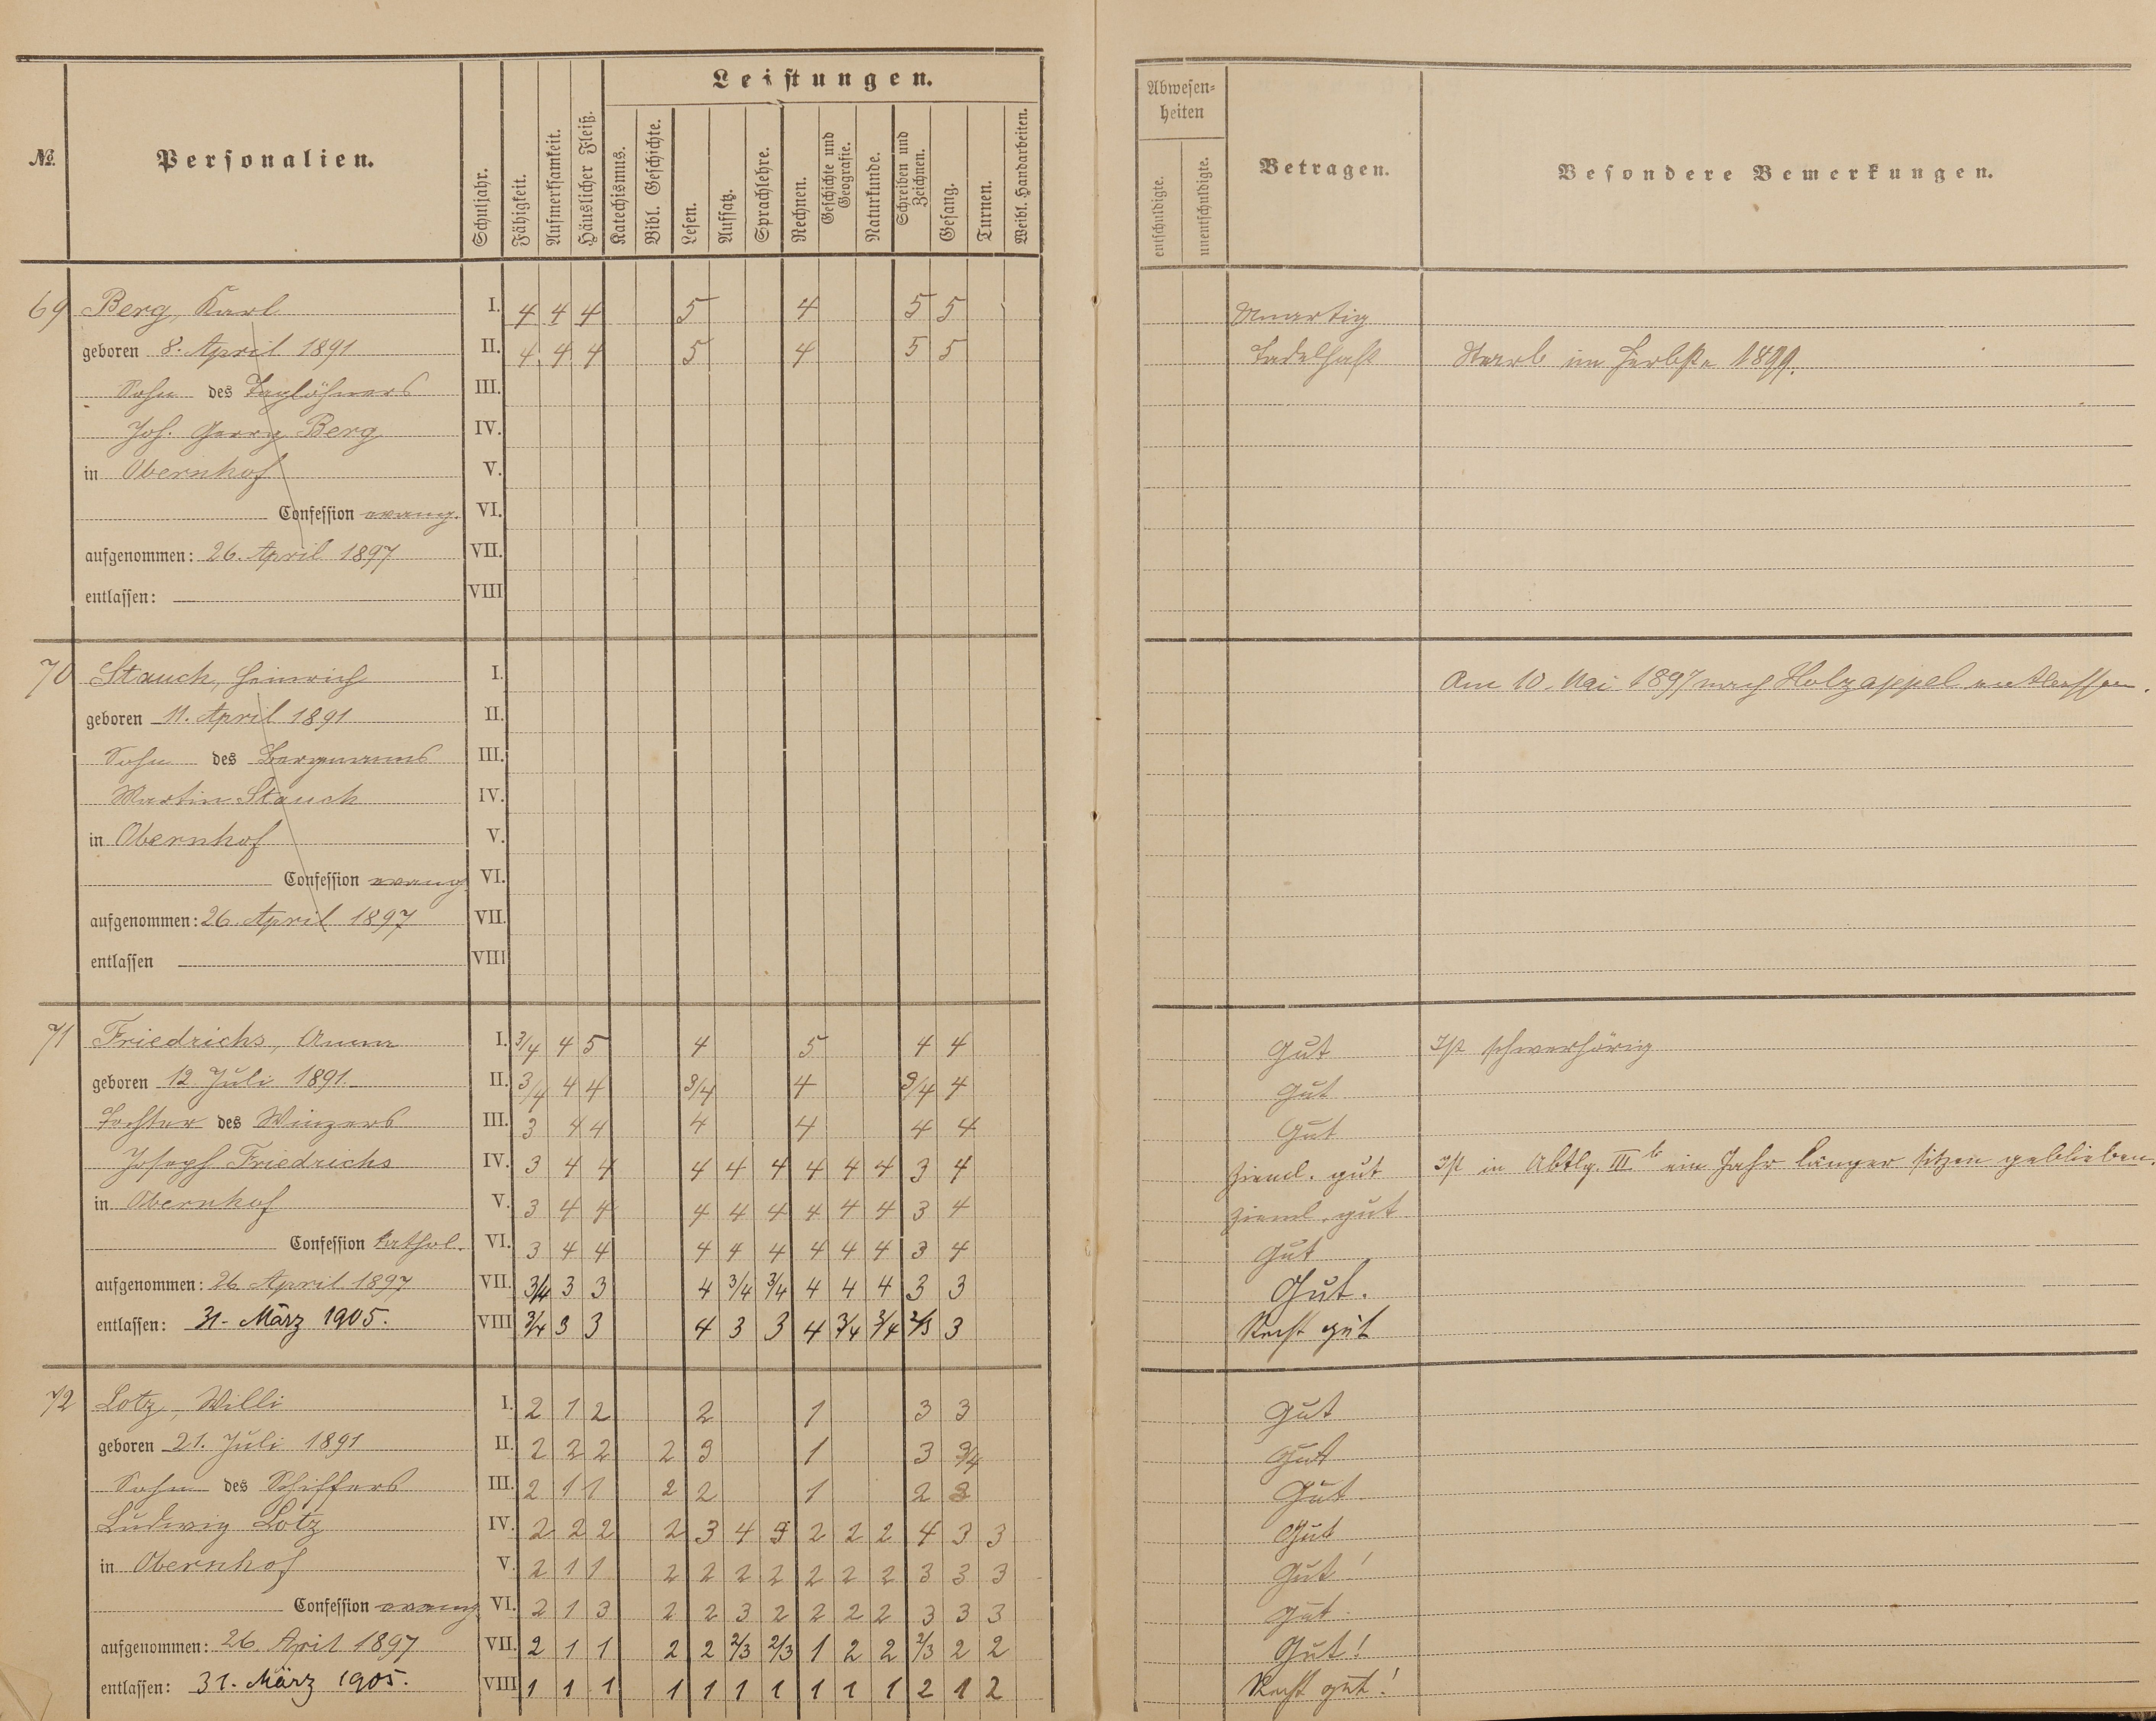 Leistungen.
Abwesen-
heiten
№
Personalien.
Schuljahr.
Fähigkeit.
Aufmerksamkeit.
Häuslicher Fleiß.
Katechismus.
Bibl. Geschichte.
Lesen.
Aufsatz.
Sprachlehre.
Rechnen.
Geschichte und
Geografie.
Naturkunde.
Schreiben und
Zeichnen.
Gesang.
Turnen.
Weibl. Handarbeiten.
entschuldigte.
unentschuldigte.
Betragen.
Besondere Bemerkungen.
69 Berg, Karl I. 4 4 4 5 4 5 5 Unartig
geboren 8. April 1891 II. 4 4 4 5 4 5 5 Tadelhaft Starb im Herbste 1899.
Sohn des Taglöhners III.
Joh. Georg Berg IV.
in Obernhof V.
Confession evang. VI.
aufgenommen: 26. April 1897 VII.
entlassen: VIII
70 Stauch, Heinrich I. Am 10. Mai 1897 nach Holzappel entlassen.
geboren 11. April 1891 II.
Sohn des Bergmanns III.
Martin Stauch IV.
in Obernhof V.
Confession evang. VI.
aufgenommen: 26. April 1897 VII.
entlassen VIII
71 Friedrichs, Anna I. 3/4 4 5 4 5 4 4 Gut Ist schwerhörig
geboren 12 Juli 1891. II. 3/4 4 4 3/4 4 3/4 4 Gut
Tochter des Winzers III. 3 4 4 4 4 4 4 Gut
Joseph Friedrichs IV. 3 4 4 4 4 4 4 4 4 3 4 Zieml. gut Ist in Abtlg. III b ein Jahr länger sitzen geblieben.
in Obernhof V. 3 4 4 4 4 4 4 4 4 3 4 Zieml. gut
Confession kathol. VI. 3 4 4 4 4 4 4 4 4 3 4 Gut
aufgenommen: 26 April 1897 VII. 3/4 3 3 4 3/4 3/4 4 4 4 3 3 Gut.
entlassen: 31. März 1905. VIII 3/4 3 3 4 3 3 4 3/4 3/4 2/3 3 Recht gut
72 Lotz, Willi I. 2 1 2 2 1 3 3 Gut
geboren 21. Juli 1891 II. 2 2 2 2 3 1 3 3/4 Gut
Sohn des Schiffers III. 2 1 1 2 2 1 2 3 Gut
Ludwig Lotz IV. 2 2 2 2 3 4 3 2 2 2 4 3 3 Gut
in Obernhof V. 2 1 1 2 2 2 2 2 2 2 3 3 3 Gut!
Confession evang VI. 2 1 3 2 2 3 2 2 2 2 3 3 3 Gut.
aufgenommen: 26. April 1897 VII. 2 1 1 2 2 2/3 2/3 1 2 2 2/3 2 2 Gut!
entlassen: 31. März 1905. VIII 1 1 1 1 1 1 1 1 1 1 2 1 2 Recht gut!